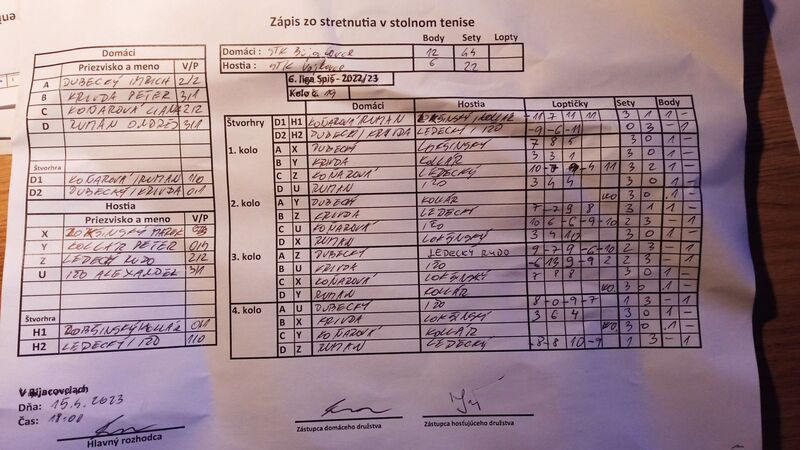 Zápis zo stretnutia v stolnom tenise
Domáci
Priezvisko a meno V/P
A DUBECKÝ IMRICH 2/2
B KRIVDA PETER 3/1
C KOŇAROVÁ 2/2
D RUMAN ONDREJ 3/1
Štvorhra
D1 KOŇAROVÁ/RUMAN 1/0
D2 DUBECKÝ/KRIVDA 0/1
Hostia
Priezvisko a meno V/P
X
Y KOLLÁR PETER 0/4
Z LEDECKÝ RUDO 2/2
U IŽO ALEXANDER 3/1
Štvorhra
H1
H2 LEDECKÝ/IŽO 1/0
Body Sety Lopty
Domáci : STK 12 44
Hostia : STK 6 22
6. liga Spiš - 2022/23
Kolo č. 19
Domáci Hostia Loptičky Sety Body
Štvorhry D1 H1 KOŇAROVÁ/RUMAN -11 7 11 11 3 1 1 -
D2 H2 DUBECKÝ/KRIVDA LEDECKÝ/IŽO -9 -6 -11 0 3 - 1
1. kolo A X DUBECKÝ LOKŠINSKÝ 7 8 5 3 0 1 -
B Y KRIVDA KOLLÁR 3 3 1 3 0 1 -
C Z KOŇAROVÁ LEDECKÝ 11 3 2 1 -
D U RUMAN IŽO 3 4 4 3 0 1 -
2. kolo A Y DUBECKÝ KOLLÁR WO 3 0 1 -
B Z KRIVDA LEDECKÝ 7 -7 9 8 3 1 1 -
C U KOŇAROVÁ IŽO 10 6 -6 -9 -10 2 3 - 1
D X RUMAN LOKŠINSKÝ 3 0 1 -
3. kolo A Z DUBECKÝ LEDECKÝ RUDO 9 -7 9 -6 -10 2 3 - 1
B U KRIVDA IŽO -6 13 9 -9 2 3 - 1
C X KOŇAROVÁ LOKŠINSKÝ 7 8 8 3 0 1 -
D Y RUMAN KOLLÁR WO 3 0 1 -
4. kolo A U DUBECKÝ IŽO 8 -0 -9 -7 1 3 - 1
B X KRIVDA LOKŠINSKÝ 3 6 4 3 0 1 -
C Y KOŇAROVÁ KOLLÁR WO 3 0 1 -
D Z RUMAN LEDECKÝ -8 -8 10 -9 1 3 - 1
V Bijacovciach
Dňa: 15.4.2023
Čas: 18:00
Hlavný rozhodca
Zástupca domáceho družstva
Zástupca hosťujúceho družstva